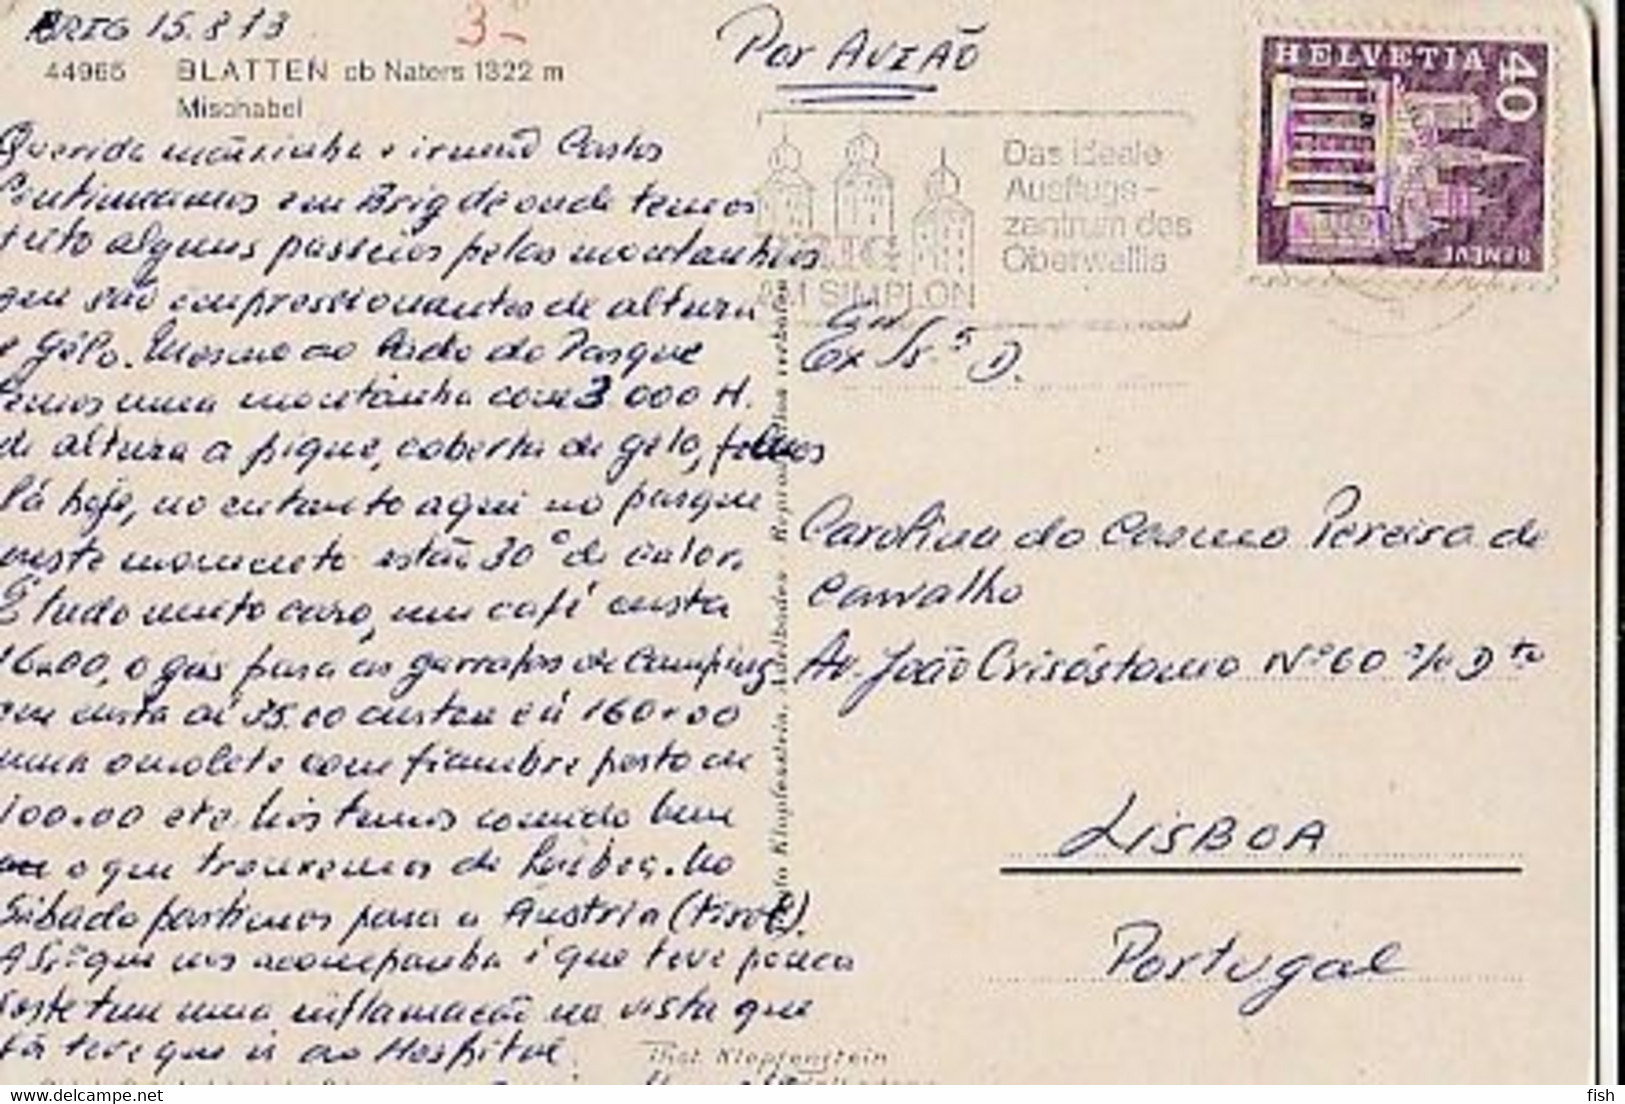 BRIG 15.8.73
3-
44965 BLATTEN ob Naters 1322 m
Mischabel
Por AVIÃO
HELVETIA 40
GENEVE
BRIG
AM SIMPLON
Das ideale
Ausflugs-
zentrum des
Oberwallis
Querida mãezinha e irmão Carlos
Continuamos em Brig de onde temos
feito alguns passeios pelas montanhas
que são impressionantes de altura
e gêlo. Mesmo ao lado do Parque
temos uma montanha com 3.000 M.
de altura a pique, coberta de gêlo, fomos
lá hoje, no entanto aqui no parque
neste momento estão 30° de calor.
É tudo muito caro, um café custa
16.00, o gás para as garrafas de Camping
que custa aí 35.00 custou cá 160.00
uma omolete com fiambre perto de
100.00 etc. Nós temos comido bem
o que trouxemos de Lisboa. No
Sábado partimos para a Áustria (Tirol).
A que nos acompanha é que teve pouca
sorte tem uma inflamação na vista que
já teve que ir ao Hospital.
Ex Sr.ª D.
Carolina do Carmo Pereira de
Carvalho
Av. João Crisóstomo Nº 60 r/c Dto
LISBOA
Portugal
Phot. Klopfenstein
Photo Klopfenstein, Adelboden. Reproduktion verboten
fish